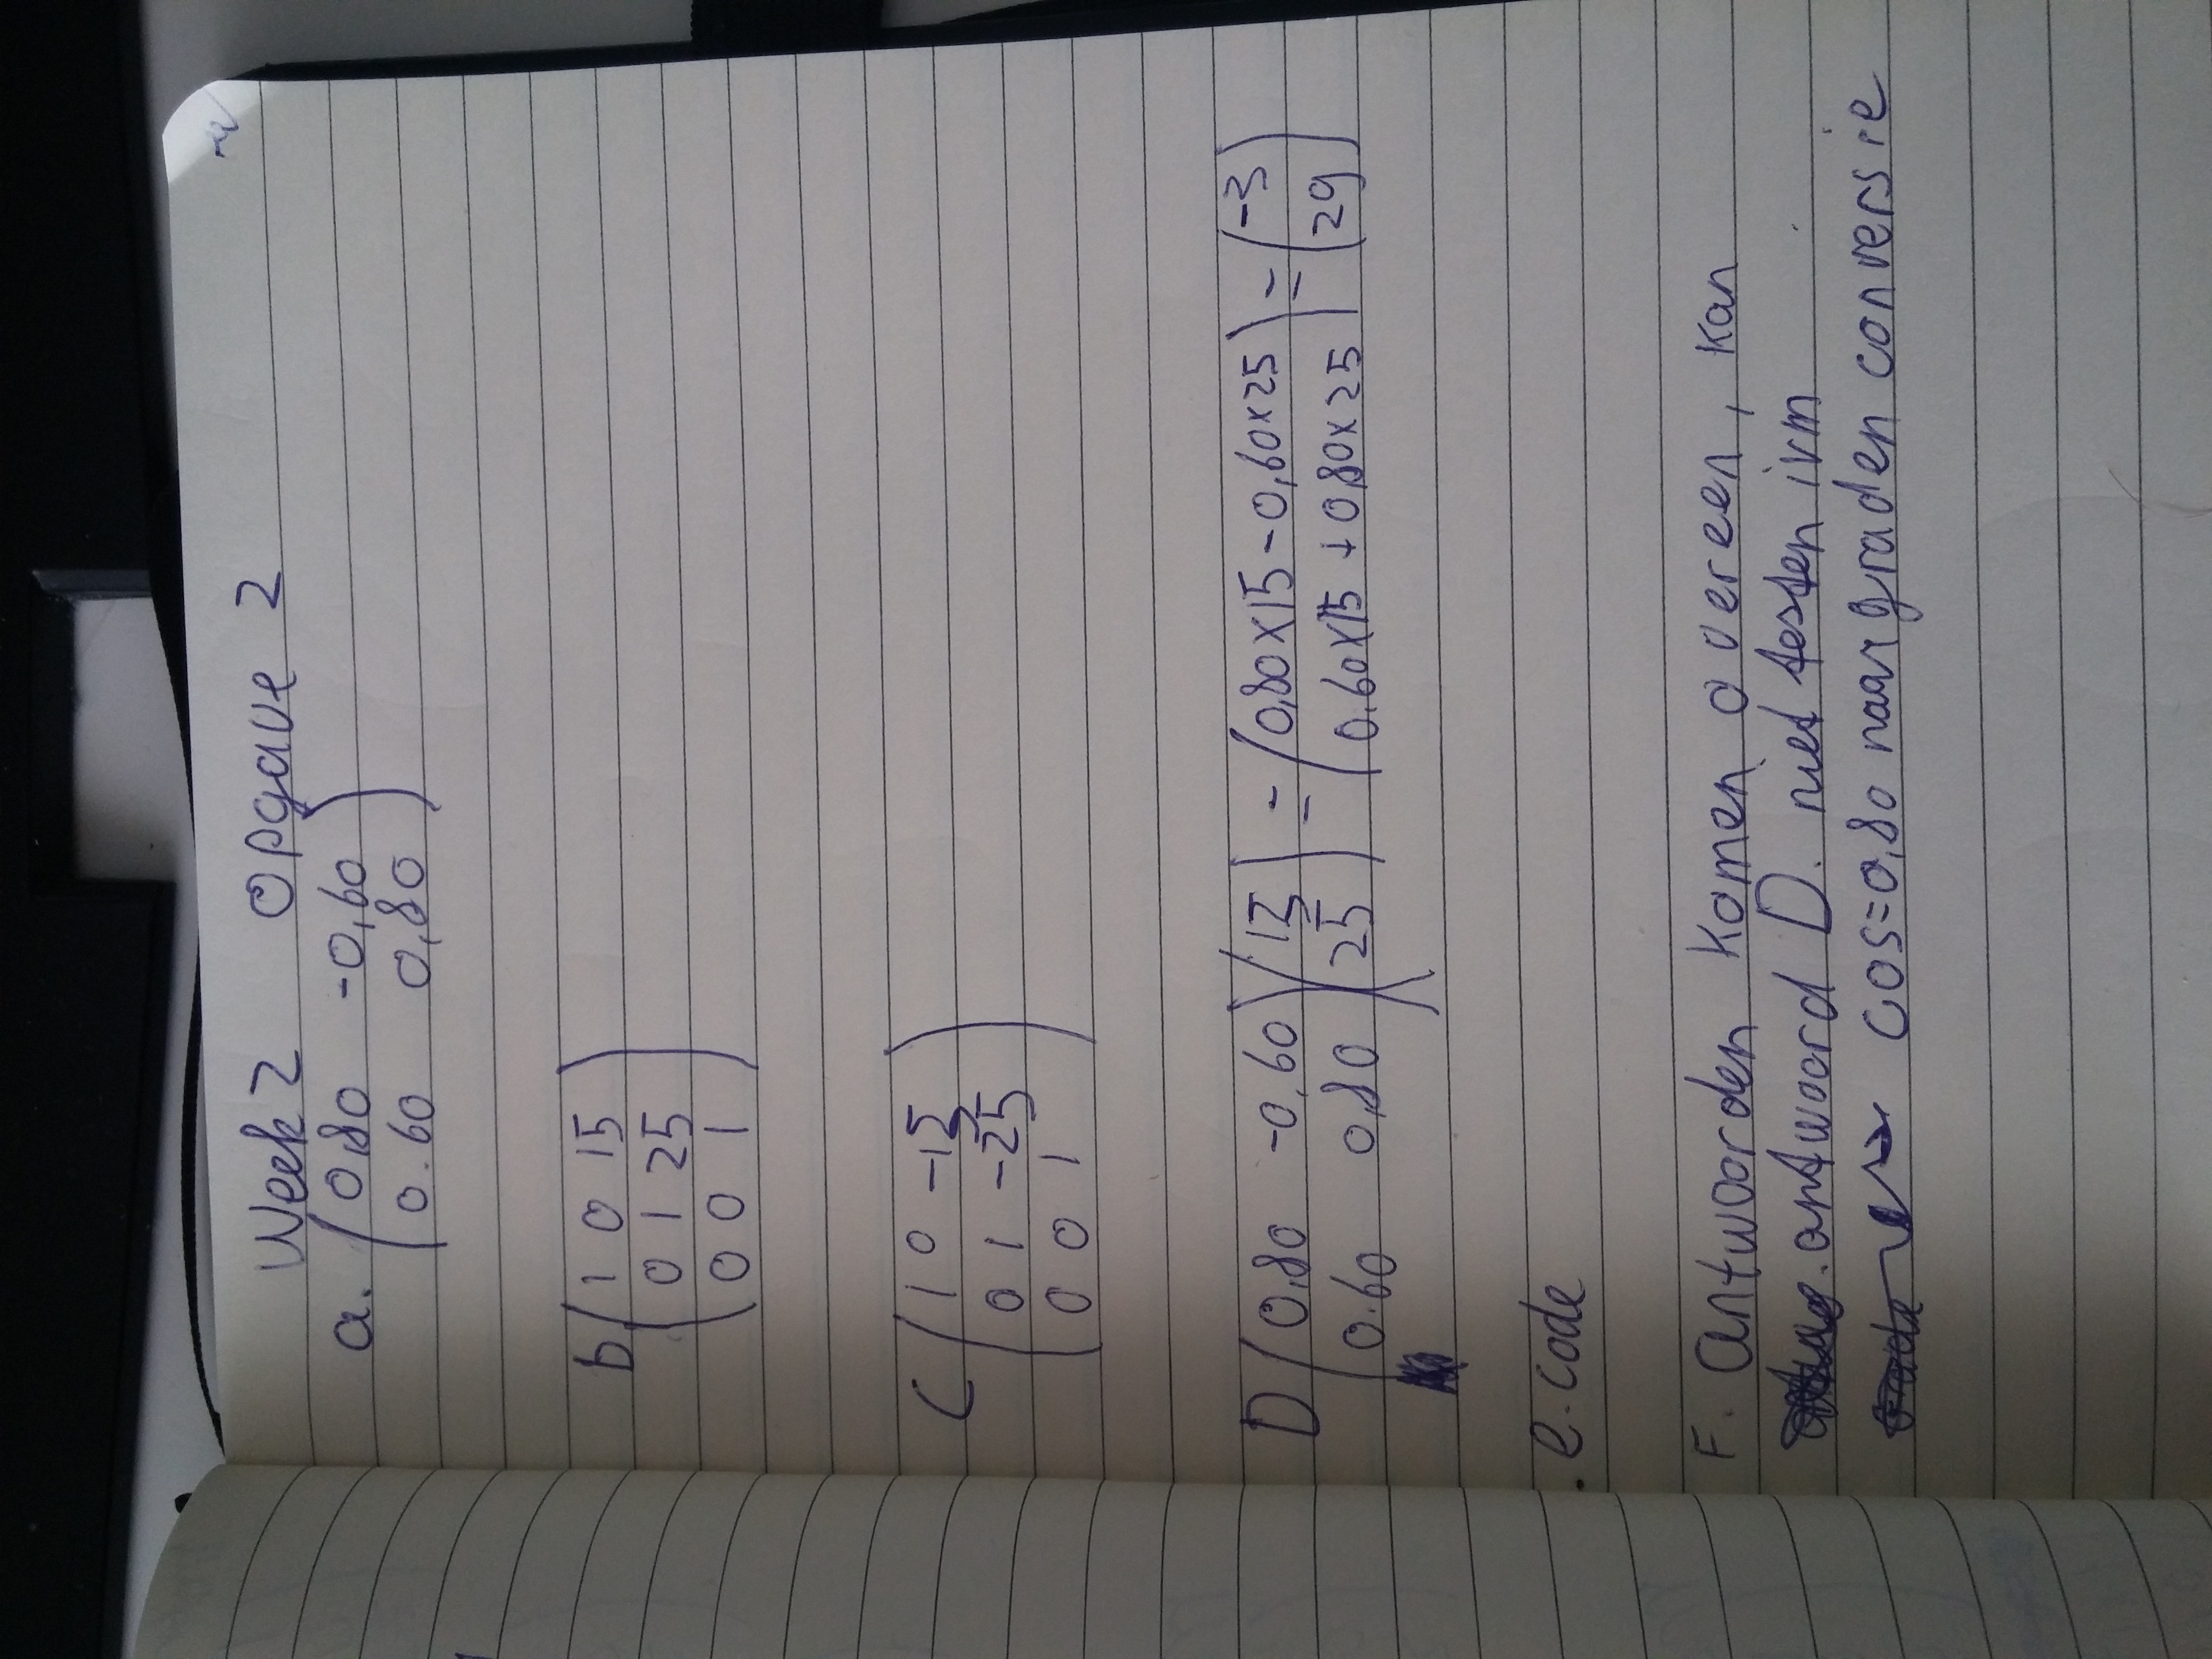 Week 2 Opgave 2
a. (0,80 -0,60
0.60 0,80)
b. (1 0 15
0 1 25
0 0 1)
C (1 0 -15
0 1 -25
0 0 1)
D (0,80 -0,60) (15) = (0,80×15-0,60×25) = (-3)
(0.60 0,80) (25) (0.60×15 + 0,80×25) (29)
e. code
F. antwoorden komen overeen, kan
antwoord D. niet testen ivm
cos=0,80 naar graden conversie